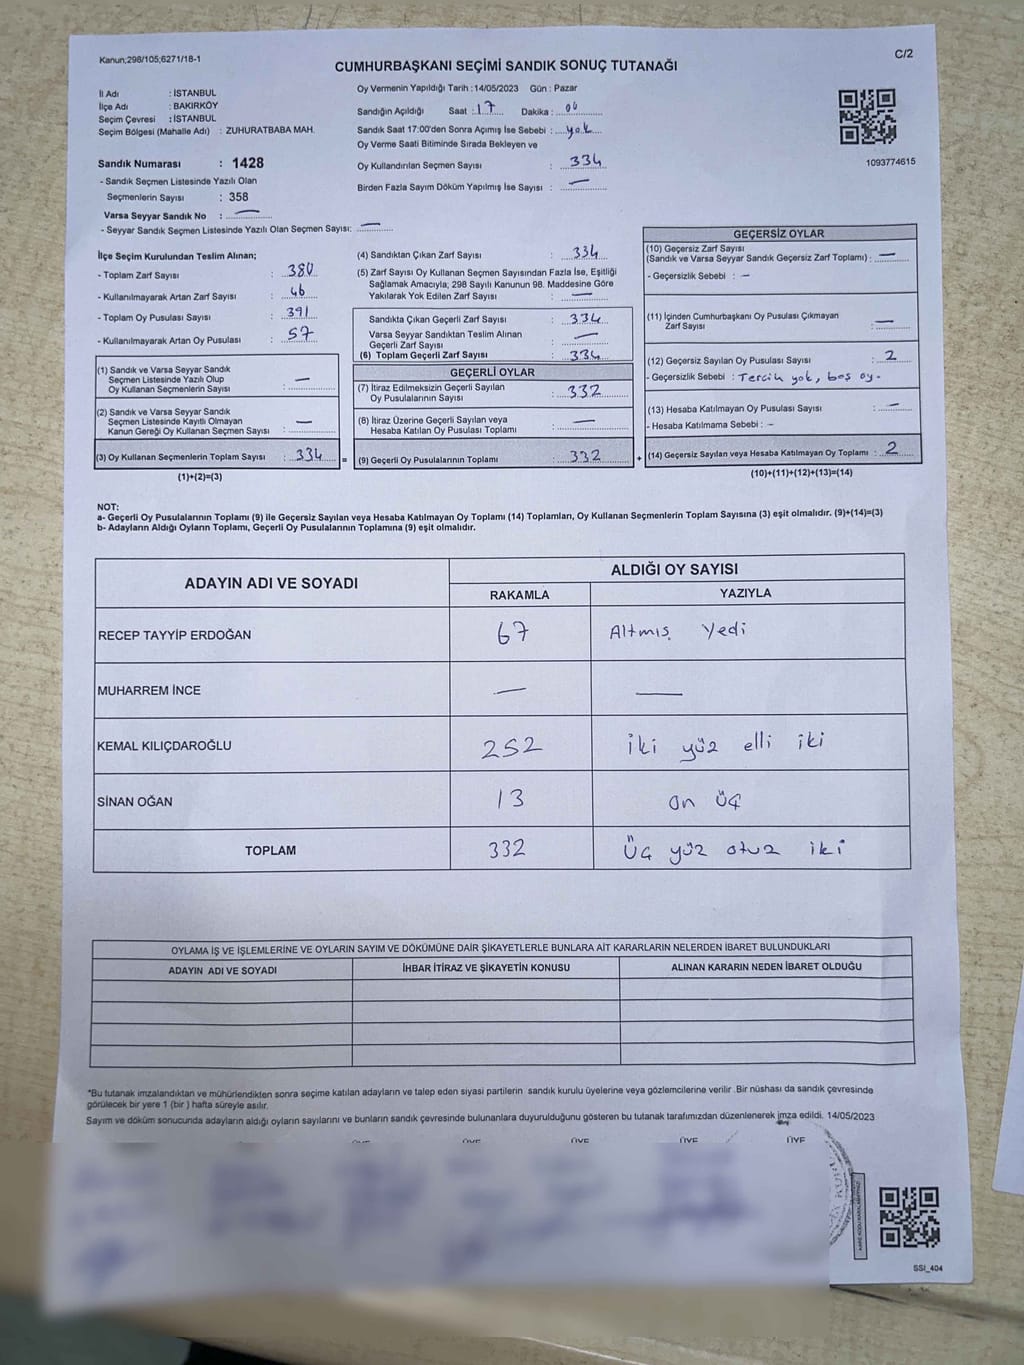 Kanun;298/105;6271/18-1
C/2
CUMHURBAŞKANI SEÇİMİ SANDIK SONUÇ TUTANAĞI
İl Adı : İSTANBUL
İlçe Adı : BAKIRKÖY
Seçim Çevresi : İSTANBUL
Seçim Bölgesi (Mahalle Adı) : ZUHURATBABA MAH.
Sandık Numarası : 1428
- Sandık Seçmen Listesinde Yazılı Olan
Seçmenlerin Sayısı : 358
Varsa Seyyar Sandık No : —
- Seyyar Sandık Seçmen Listesinde Yazılı Olan Seçmen Sayısı: —
Oy Vermenin Yapıldığı Tarih : 14/05/2023 Gün : Pazar
Sandığın Açıldığı Saat : 17 Dakika : 00
Sandık Saat 17:00'den Sonra Açımış İse Sebebi : yok
Oy Verme Saati Bitiminde Sırada Bekleyen ve
Oy Kullandırılan Seçmen Sayısı : 334
Birden Fazla Sayım Döküm Yapılmış İse Sayısı : —
1093774615
İlçe Seçim Kurulundan Teslim Alınan;
- Toplam Zarf Sayısı : 380
- Kullanılmayarak Artan Zarf Sayısı : 46
- Toplam Oy Pusulası Sayısı : 391
- Kullanılmayarak Artan Oy Pusulası : 57
(1) Sandık ve Varsa Seyyar Sandık
Seçmen Listesinde Yazılı Olup
Oy Kullanan Seçmenlerin Sayısı : —
(2) Sandık ve Varsa Seyyar Sandık
Seçmen Listesinde Kayıtlı Olmayan
Kanun Gereği Oy Kullanan Seçmen Sayısı : —
(3) Oy Kullanan Seçmenlerin Toplam Sayısı : 334 =
(1)+(2)=(3)
(4) Sandıktan Çıkan Zarf Sayısı : 334
(5) Zarf Sayısı Oy Kullanan Seçmen Sayısından Fazla İse, Eşitliği
Sağlamak Amacıyla; 298 Sayılı Kanunun 98. Maddesine Göre
Yakılarak Yok Edilen Zarf Sayısı : —
Sandıkta Çıkan Geçerli Zarf Sayısı : 334
Varsa Seyyar Sandıktan Teslim Alınan
Geçerli Zarf Sayısı : —
(6) Toplam Geçerli Zarf Sayısı : 334
GEÇERLİ OYLAR
(7) İtiraz Edilmeksizin Geçerli Sayılan
Oy Pusulalarının Sayısı : 332
(8) İtiraz Üzerine Geçerli Sayılan veya
Hesaba Katılan Oy Pusulası Toplamı : —
(9) Geçerli Oy Pusulalarının Toplamı : 332 +
GEÇERSİZ OYLAR
(10) Geçersiz Zarf Sayısı
(Sandık ve Varsa Seyyar Sandık Geçersiz Zarf Toplamı) : —
- Geçersizlik Sebebi : —
(11) İçinden Cumhurbaşkanı Oy Pusulası Çıkmayan
Zarf Sayısı : —
(12) Geçersiz Sayılan Oy Pusulası Sayısı : 2
- Geçersizlik Sebebi : Tercih yok, boş oy.
(13) Hesaba Katılmayan Oy Pusulası Sayısı : —
- Hesaba Katılmama Sebebi : —
(14) Geçersiz Sayılan veya Hesaba Katılmayan Oy Toplamı : 2
(10)+(11)+(12)+(13)=(14)
NOT:
a- Geçerli Oy Pusulalarının Toplamı (9) ile Geçersiz Sayılan veya Hesaba Katılmayan Oy Toplamı (14) Toplamları, Oy Kullanan Seçmenlerin Toplam Sayısına (3) eşit olmalıdır. (9)+(14)=(3)
b- Adayların Aldığı Oyların Toplamı, Geçerli Oy Pusulalarının Toplamına (9) eşit olmalıdır.
ADAYIN ADI VE SOYADI
ALDIĞI OY SAYISI
RAKAMLA YAZIYLA
RECEP TAYYİP ERDOĞAN 67 Altmış Yedi
MUHARREM İNCE — —
KEMAL KILIÇDAROĞLU 252 iki yüz elli iki
SİNAN OĞAN 13 on üç
TOPLAM 332 Üç yüz otuz iki
OYLAMA İŞ VE İŞLEMLERİNE VE OYLARIN SAYIM VE DÖKÜMÜNE DAİR ŞİKAYETLERLE BUNLARA AİT KARARLARIN NELERDEN İBARET BULUNDUKLARI
ADAYIN ADI VE SOYADI İHBAR İTİRAZ VE ŞİKAYETİN KONUSU ALINAN KARARIN NEDEN İBARET OLDUĞU
*Bu tutanak imzalandıktan ve mühürlendikten sonra seçime katılan adayların ve talep eden siyasi partilerin sandık kurulu üyelerine veya gözlemcilerine verilir .Bir nüshası da sandık çevresinde
görülecek bir yere 1 (bir ) hafta süreyle asılır.
Sayım ve döküm sonucunda adayların aldığı oyların sayılarını ve bunların sandık çevresinde bulunanlara duyurulduğunu gösteren bu tutanak tarafımızdan düzenlenerek imza edildi. 14/05/2023
ÜYE ÜYE ÜYE ÜYE
SSI_404